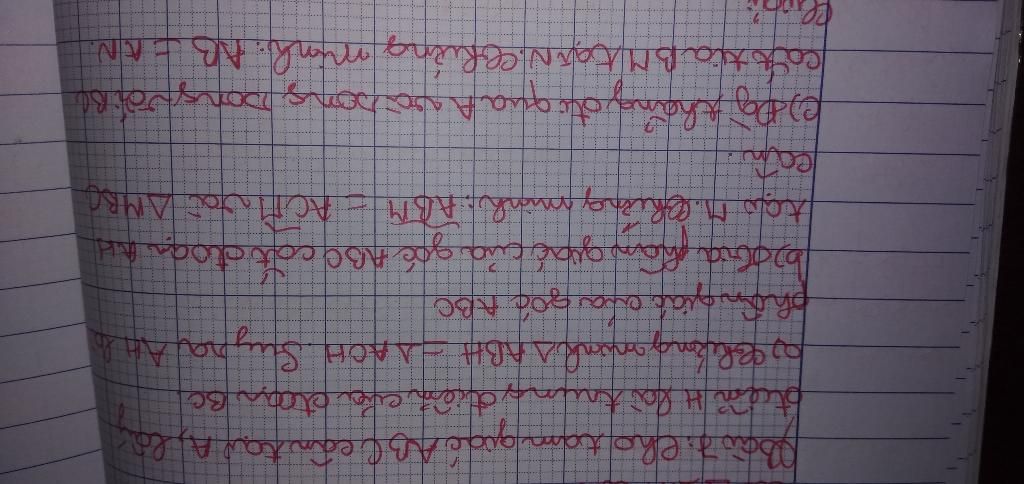 Bài 7: Cho tam giác ABC cân tại A, lấy
điểm H là trung điểm của đoạn BC.
a) Chứng minh ΔABH = ΔACH. Suy ra AH là
phân giác của góc ABC
b) tia phân giác của góc ABC cắt đoạn AH
tại M. Chứng minh: ABM = ACM và ΔMBC
cân.
c) Đường thẳng đi qua A và song song với BC
cắt tia BM tại N. Chứng minh: AB = AN.